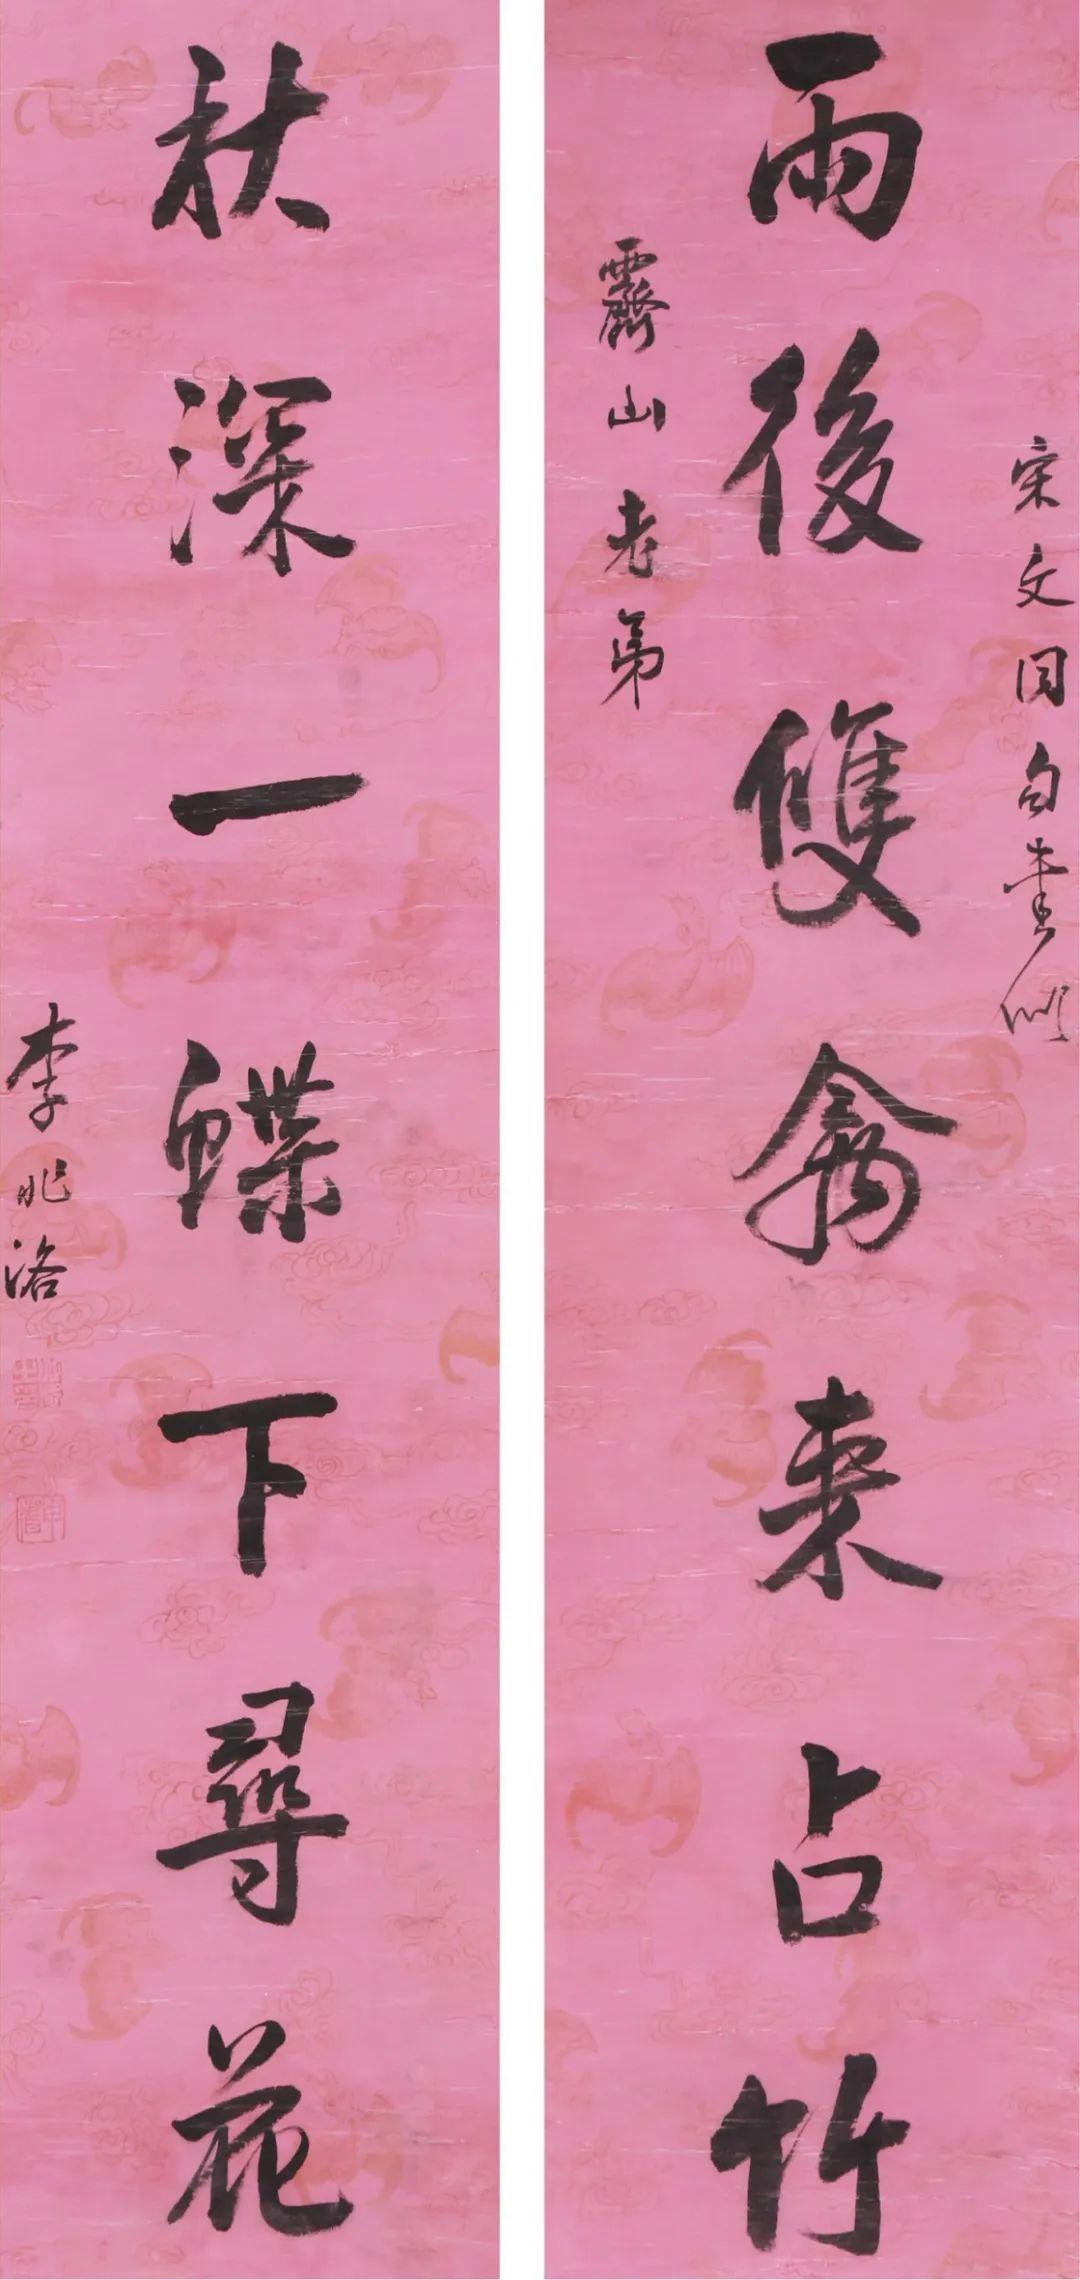 雨後雙禽来占竹
宋文同句書似
霽山老弟
秋深一蝶下尋花
李兆洛